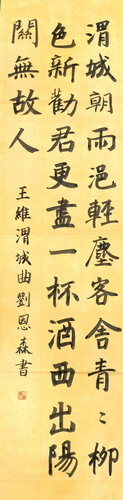 渭城朝雨浥輕塵客舍青〻柳
色新勸君更盡一杯酒西出陽
關無故人
王維渭城曲劉恩森書